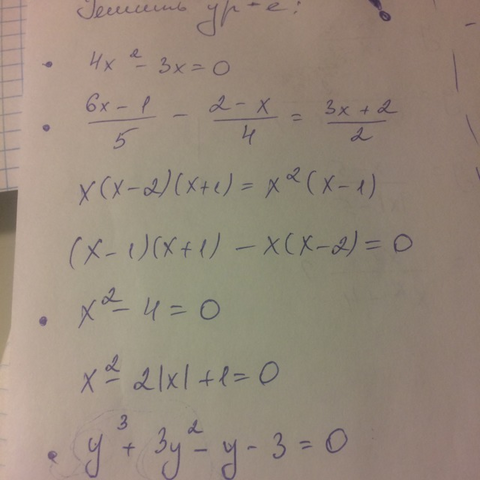 Решить ур-е:
• 4x² - 3x = 0
• (6x - 1)/5 - (2 - x)/4 = (3x + 2)/2
x(x-2)(x+1) = x²(x-1)
(x-1)(x+1) - x(x-2) = 0
• x² - 4 = 0
x² - 2|x| + 1 = 0
• y³ + 3y² - y - 3 = 0